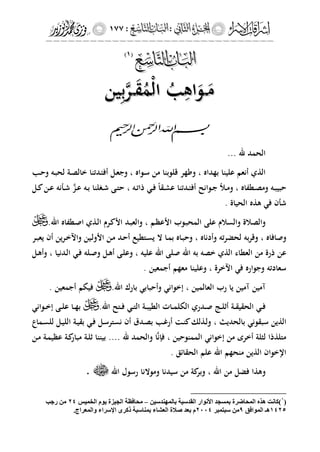 إشراقات الإسراء الجزء الثاني : الباب التاسع : ١٧٧ فوزي محمد أبوزيد
الباب التاسع (١)
مَوَاهِبُ الْمُقَرَّبِين
بسم الله الرحمن الرحيم
الحمد لله ...
الذي أنعم علينا بهداه ، وطهر قلوبنا من سواه ، وجعل أفئدتنا خالصة لحبه وحب
حبيبه ومصطفاه ، وملأ جوانح أفئدتنا عشقاً في ذاته ، حتى شغلنا به عزَّ شأنه عن كل
شأن في هذه الحياة .
والصلاة والسلام على المحبوب الأعظم ، والعبد الأكرم الذي اصطفاه الله
وصافاه ، وقربه لحضرته وأدناه ، وحباه بما لا يستطيع أحد من الأولين والآخرين أن يعبر
عن ذرة من العطاء الذي خصه به الله صلى الله عليه ، وعلى أهل وصله في الدنيا ، وأهل
سعادته وجواره في الآخرة ، وعلينا معهم أجمعين .
آمين آمين يا رب العالمين ، إخواني وأحبابي بارك الله فيكم أجمعين .
في الحقيقة أثلج صدري الكلمات الطيبة التي فتح الله بها على إخواني
الذين سبقوني بالحديث ، ولذلك كنت أرغب بصدق أن نسترسل في بقية الليل للسماع
متلذذا لثلة أخرى من إخواني الممنوحين ، فإنَّنا والحمد لله .... بيننا ثلة مباركة عظيمة من
الإخوان الذين منحهم الله علم الحقائق .
وهذا فضل من الله ، وبركة من سيدنا ومولانا رسول الله .
(١)كانت هذه المحاضرة بمسجد الأنوار القدسية بالمهندسين – محافظة الجيزة يوم الخميس ٢٤ من رجب
١٤٢٥هـ الموافق ٩من سبتمبر ٢٠٠٤م بعد صلاة العشاء بمناسبة ذكرى الإسراء والمعراج.